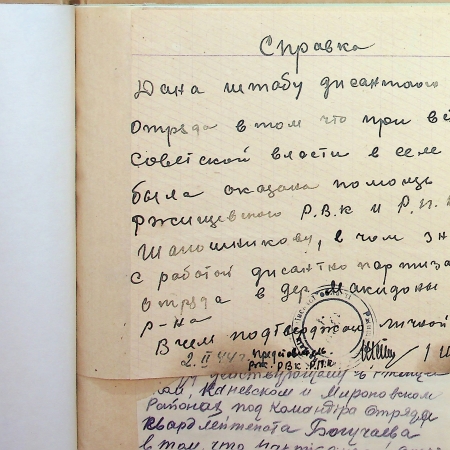 Справка
Дана штабу дисантного
Отряда в том что при вс
Советской власти в селе
была оказана помощь
Ржищевского Р.В.К и Р.П.К
Шапошникову, в чом зн
с работой дисантно партиза
Отряда в дер Македоны
р-на
В чем подтверджаю личной
2.II 44 г. председатель
Рж. РВК
Каневском и Мироновском
Районах под командира отряда
гвард лейтенота Богучаева
в том, что